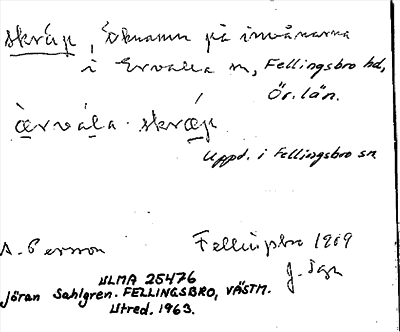 skráp, öknamn på invånarna
i Ervalla sn, Fellingsbro hd,
Ör. län.
àrvála - skráp
Uppd. i Fellingsbro sn
A. Persson Fellingsbro 1909
ULMA 25476
Jöran Sahlgren. FELLINGSBRO, VÄSTM.
Utred. 1963.